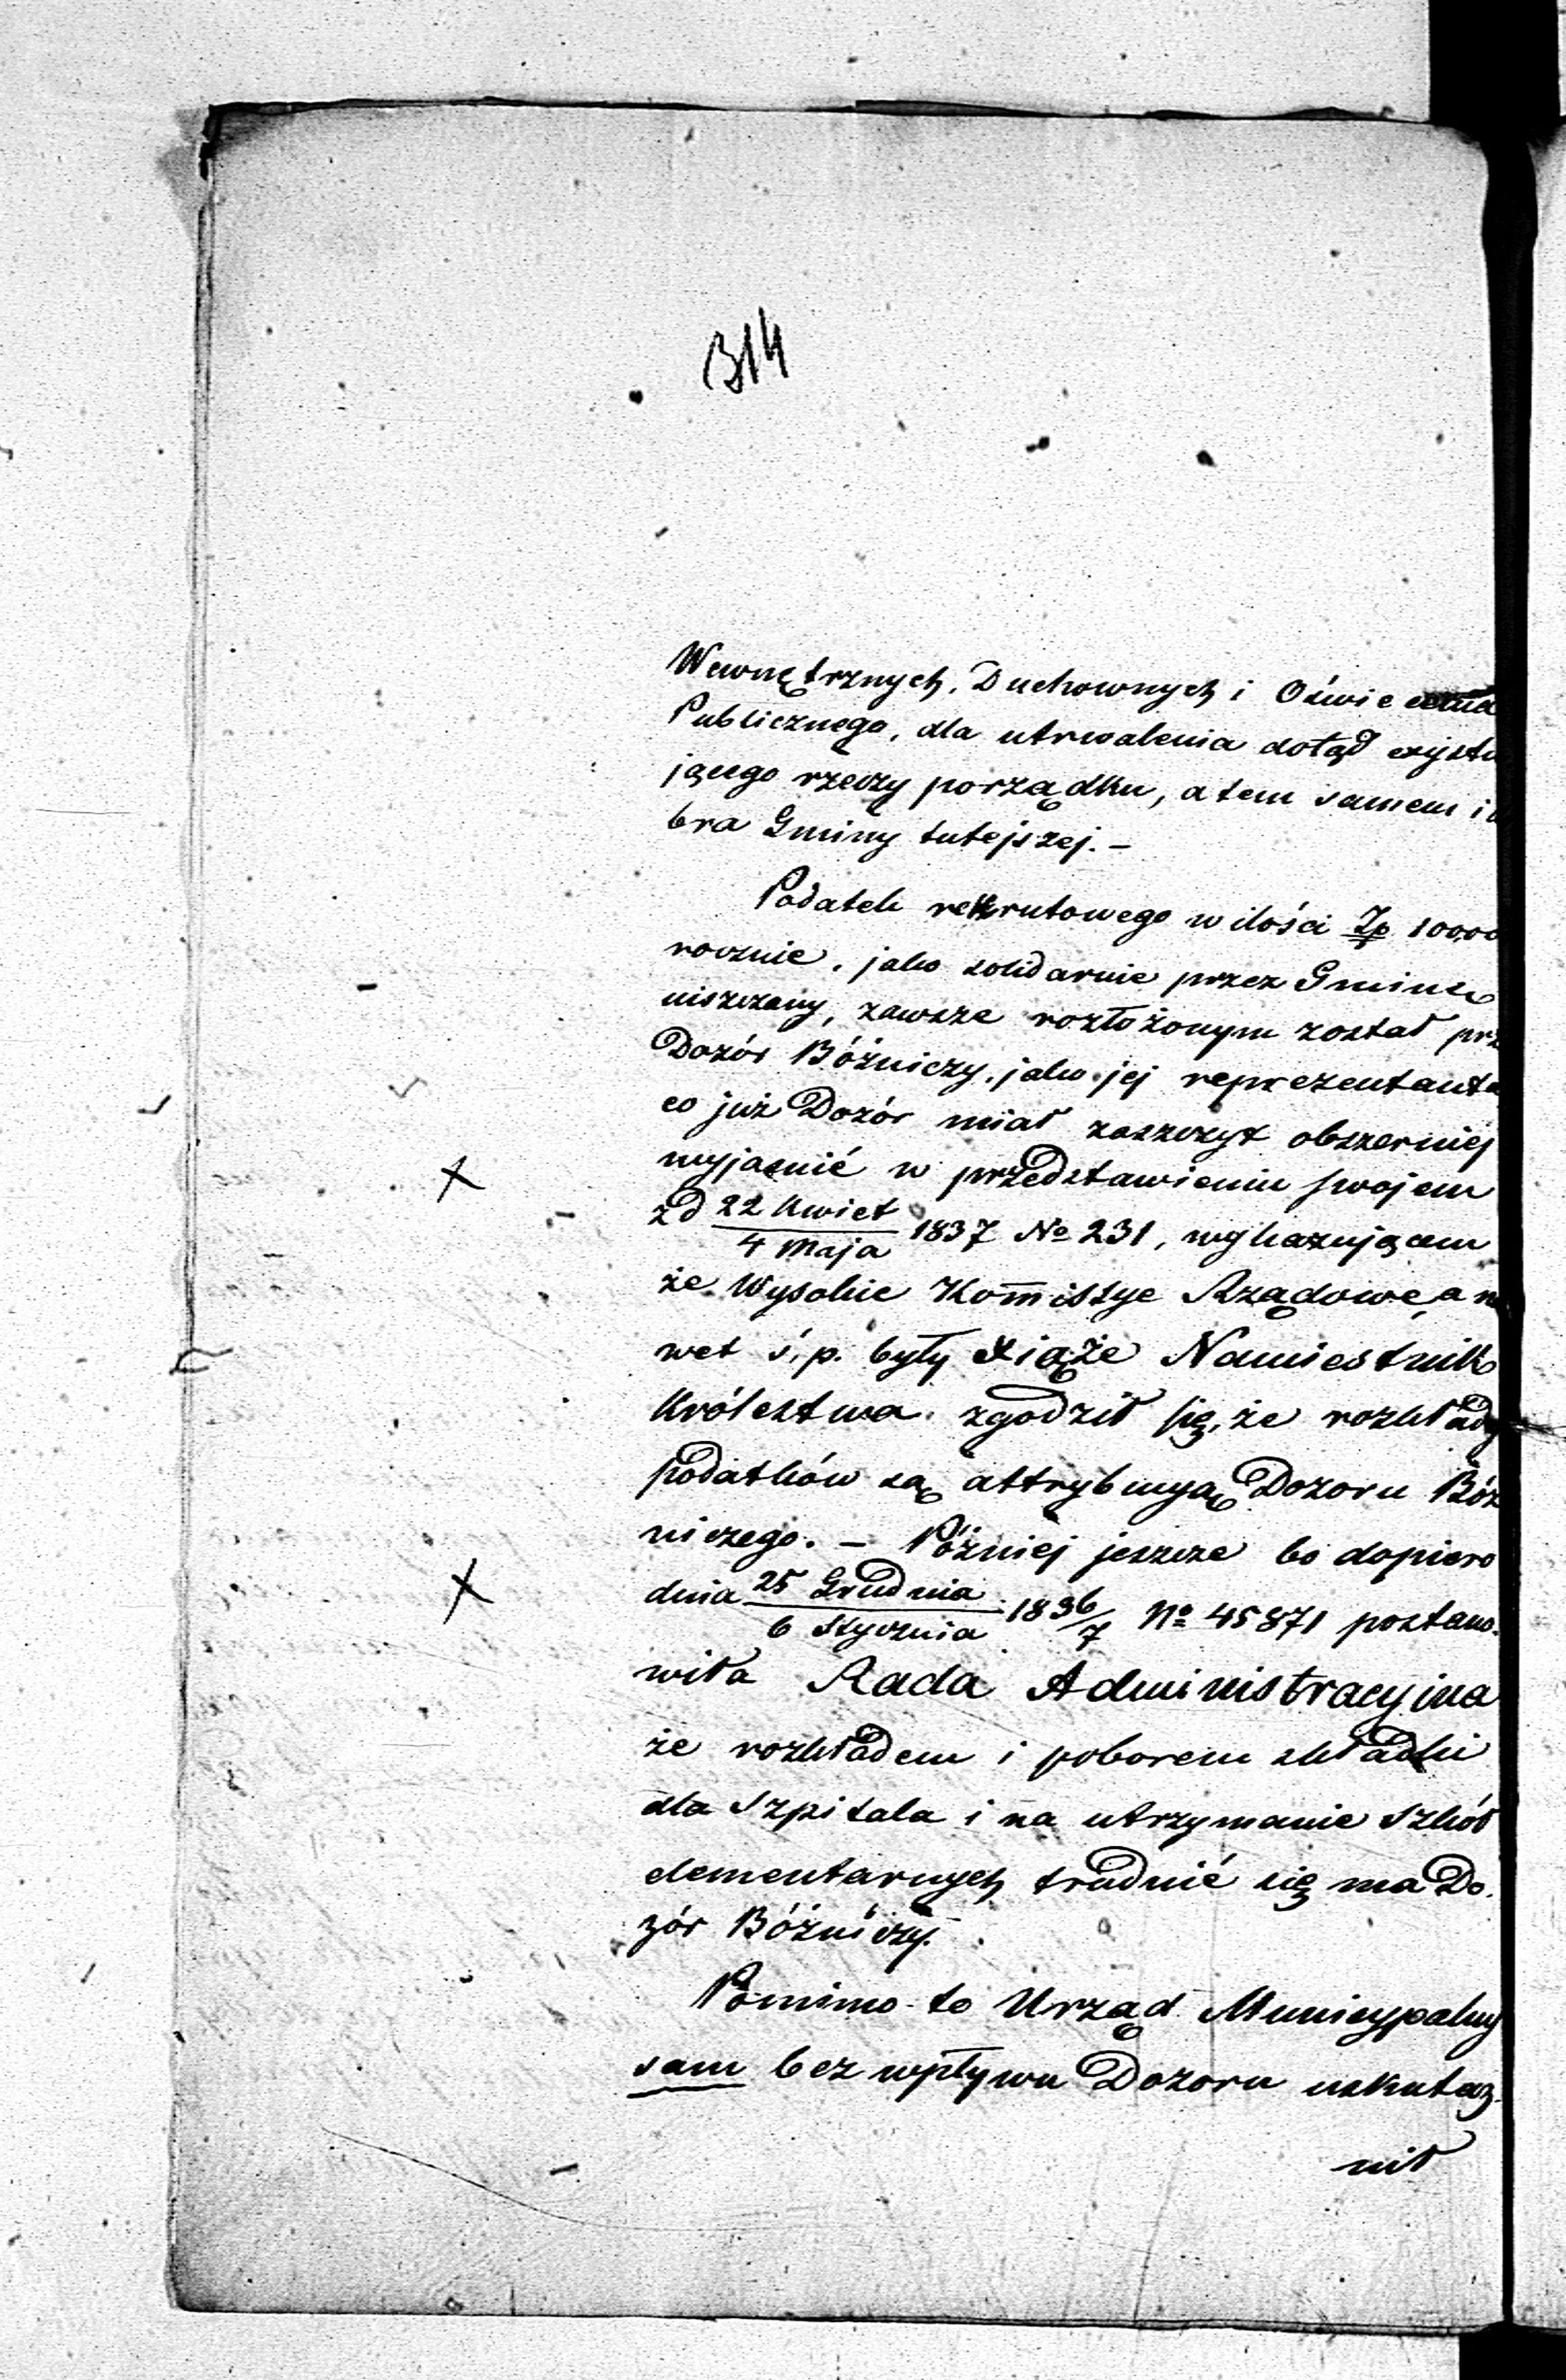 314
Wewnętrznych, Duchownych i Oświecenia
Publicznego, dla utrwalenia dotąd exystu
jącego rzeczy porządku, a tem samem i
bra Gminy tutejszej. –
Podatek rekrutowego w ilości Zp 10000
rocznie, jako solidarnie przez Gminę
uiszczany, zawsze rozłożonym został prz
Dozór Bóźniczy, jako jej reprezentanta
co już Dozór miał zaszczyt obszerniej
wyjaśnić w przedstawieniu swojem
zd 22 Kwiet / 4 Maja 1837 No 231, wykazującem
że Wysokie Kommissye Rządowe, a na
wet ś. p. były Xiąże Namiestnik
Królestwa zgodził się, że rozkłady
podatków są attrybucyą Dozoru Bóż
niczego. – Później jeszcze bo dopiero
dnia 25 Grudnia / 6 Stycznia 1836/7 No 45871 postano-
wiła Rada Administracyjna
że rozkładem i poborem składki
dla Szpitala i na utrzymanie Szkół
elementarnych trudnić się ma Do-
zór Bóźniczy.
Pomimo to Urząd Municypalny
sam bez wpływu Dozoru uskutecz-
nił